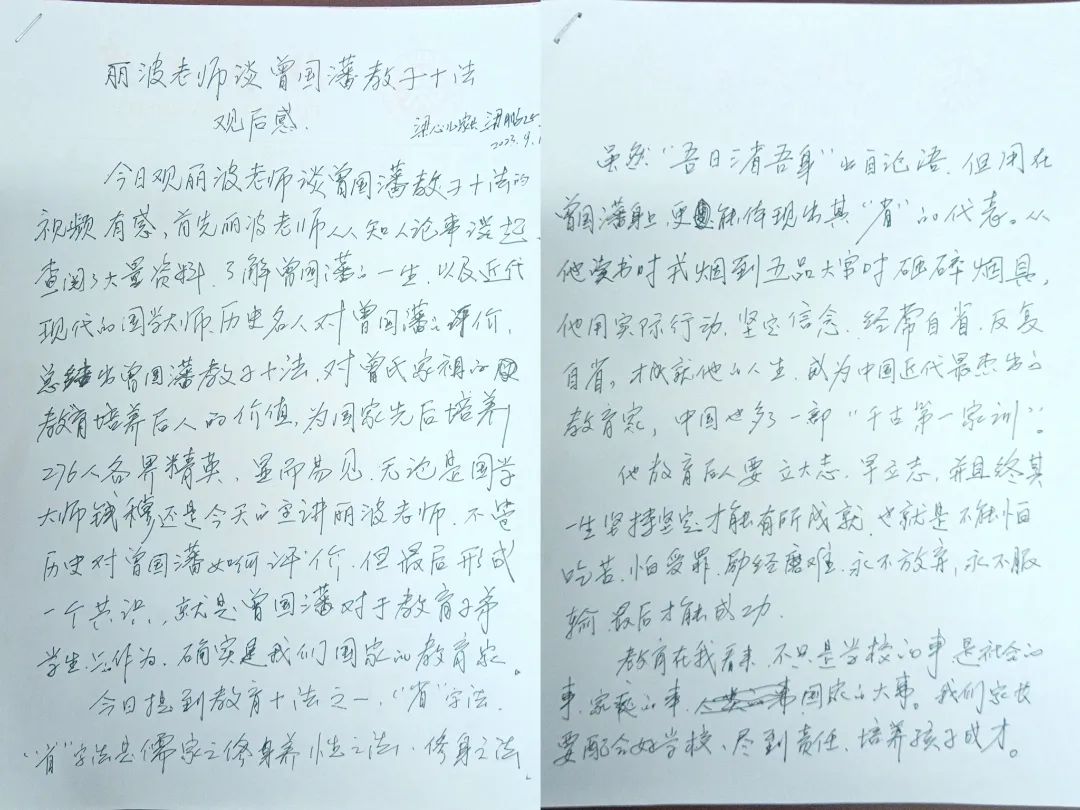 丽波老师谈曾国藩教子十法
观后感.
梁心 梁
2023.9.1
今日观丽波老师谈曾国藩教子十法的
视频有感,首先丽波老师从知人论事谈起.
查阅了大量资料.了解曾国藩的一生.以及近代
现代的国学大师.历史名人对曾国藩之评价.
总结出曾国藩教子十法.对曾氏家祖的
教育培养后人的价值,为国家先后培养
276人各界精英.显而易见.无论是国学
大师钱穆还是今天的主讲丽波老师.不管
历史对曾国藩如何评价.但最后形成
一个共识,就是曾国藩对于教育子弟
学生.所作为.确实是我们国家的教育家。
今日提到教育十法之一,“省”字法.
“省”字法是儒家之修身养性之法、修身之法,
虽然“吾日三省吾身”出自论语.但用在
曾国藩身上.更能体现出其“省”的代表。从
他读书时戒烟到五品大官时砸碎烟具,
他用实际行动.坚定信念.经常自省.反复
自省,才成就他的人生.成为中国近代最杰出的
教育家,中国也多了一部“千古第一家训”.
他教育后人要立大志.早立志.并且终其
一生坚持坚定才能有所成就.也就是不能怕
吃苦.怕受罪.励经磨难.永不放弃,永不服
输.最后才能成功.
教育在我看来.不只是学校的事是社会的
事.家庭的事.国家的大事。我们家长
要配合好学校、尽到责任.培养孩子成才。